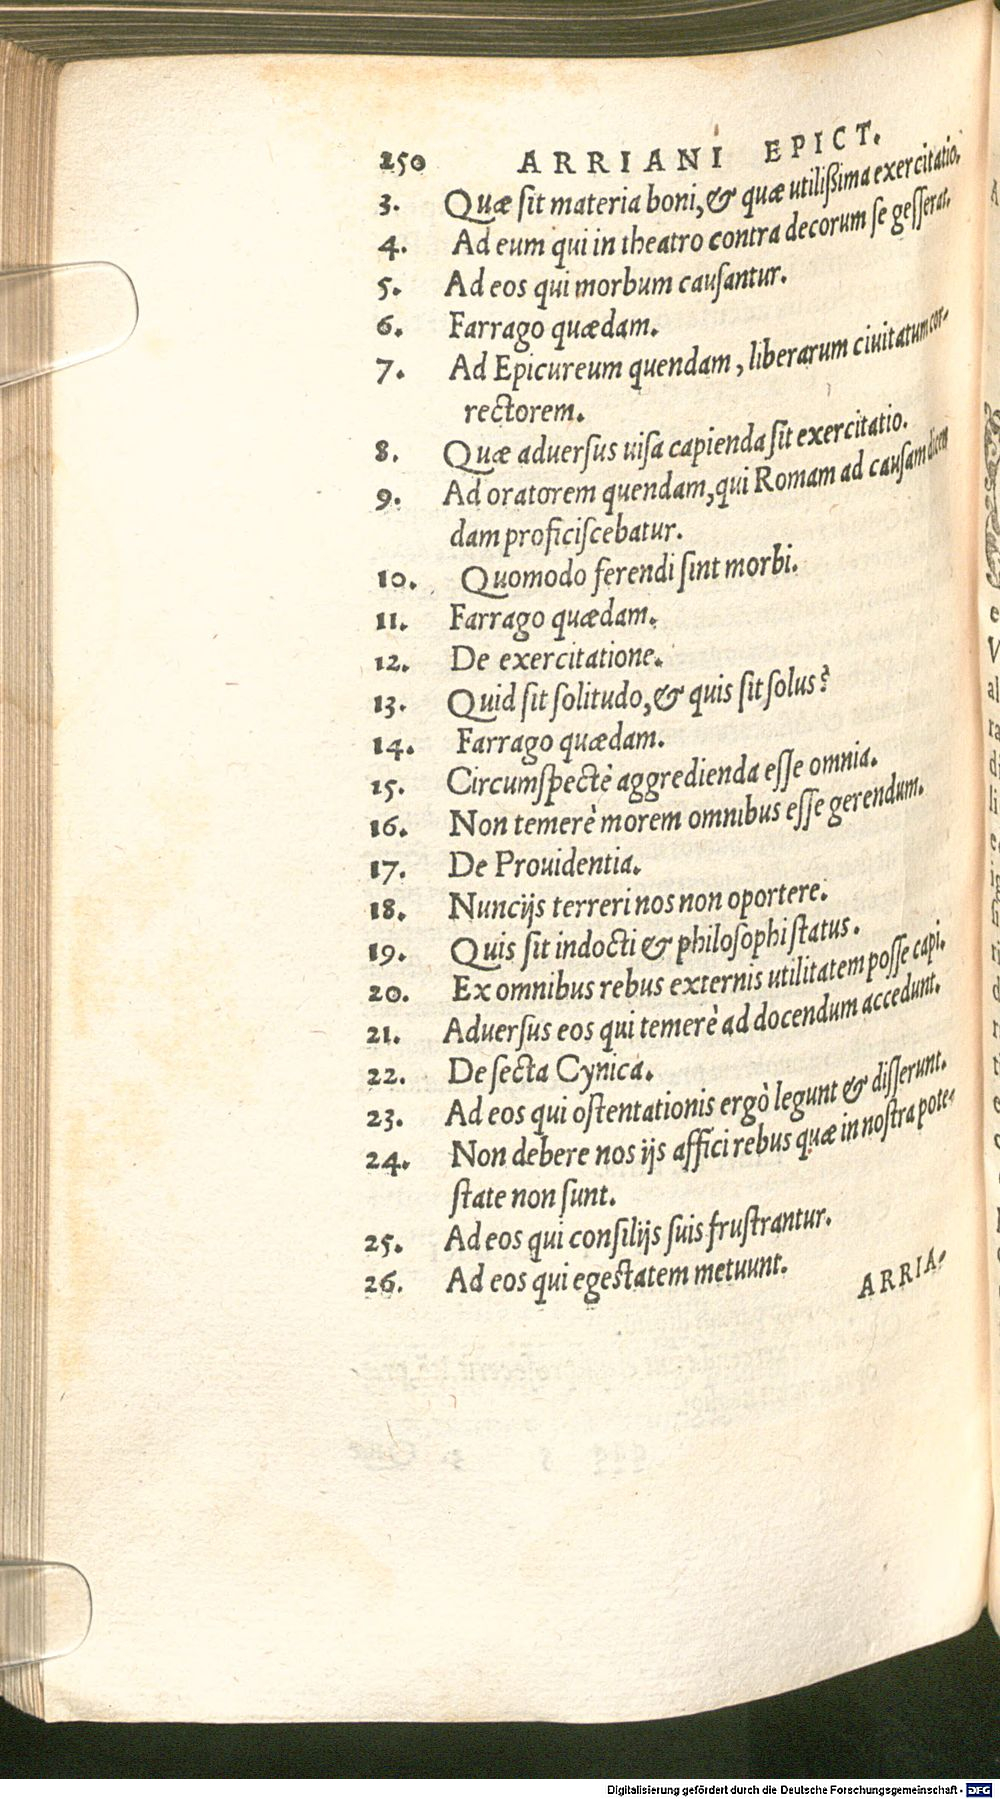 250 ARRIANI EPICT.
3. Quæ sit materia boni, & quæ utilißima exercitatio.
4. Ad eum qui in theatro contra decorum se gesserat.
5. Ad eos qui morbum causantur.
6. Farrago quædam.
7. Ad Epicureum quendam, liberarum ciuitatum cor-
rectorem.
8. Quæ aduersus uisa capienda sit exercitatio.
9. Ad oratorem quendam, qui Romam ad causam dicen
dam proficiscebatur.
10. Quomodo ferendi sint morbi.
11. Farrago quædam.
12. De exercitatione.
13. Quid sit solitudo, & quis sit solus?
14. Farrago quædam.
15. Circumspectè aggredienda esse omnia.
16. Non temerè morem omnibus esse gerendum.
17. De Prouidentia.
18. Nuncijs terreri nos non oportere.
19. Quis sit indocti & philosophi status.
20. Ex omnibus rebus externis utilitatem posse capi.
21. Aduersus eos qui temerè ad docendum accedunt.
22. De secta Cynica.
23. Ad eos qui ostentationis ergò legunt & disserunt.
24. Non debere nos ijs affici rebus quæ in nostra pote-
state non sunt.
25. Ad eos qui consilijs suis frustrantur.
26. Ad eos qui egestatem metuunt.
ARRIA-
Digitalisierung gefördert durch die Deutsche Forschungsgemeinschaft - DFG